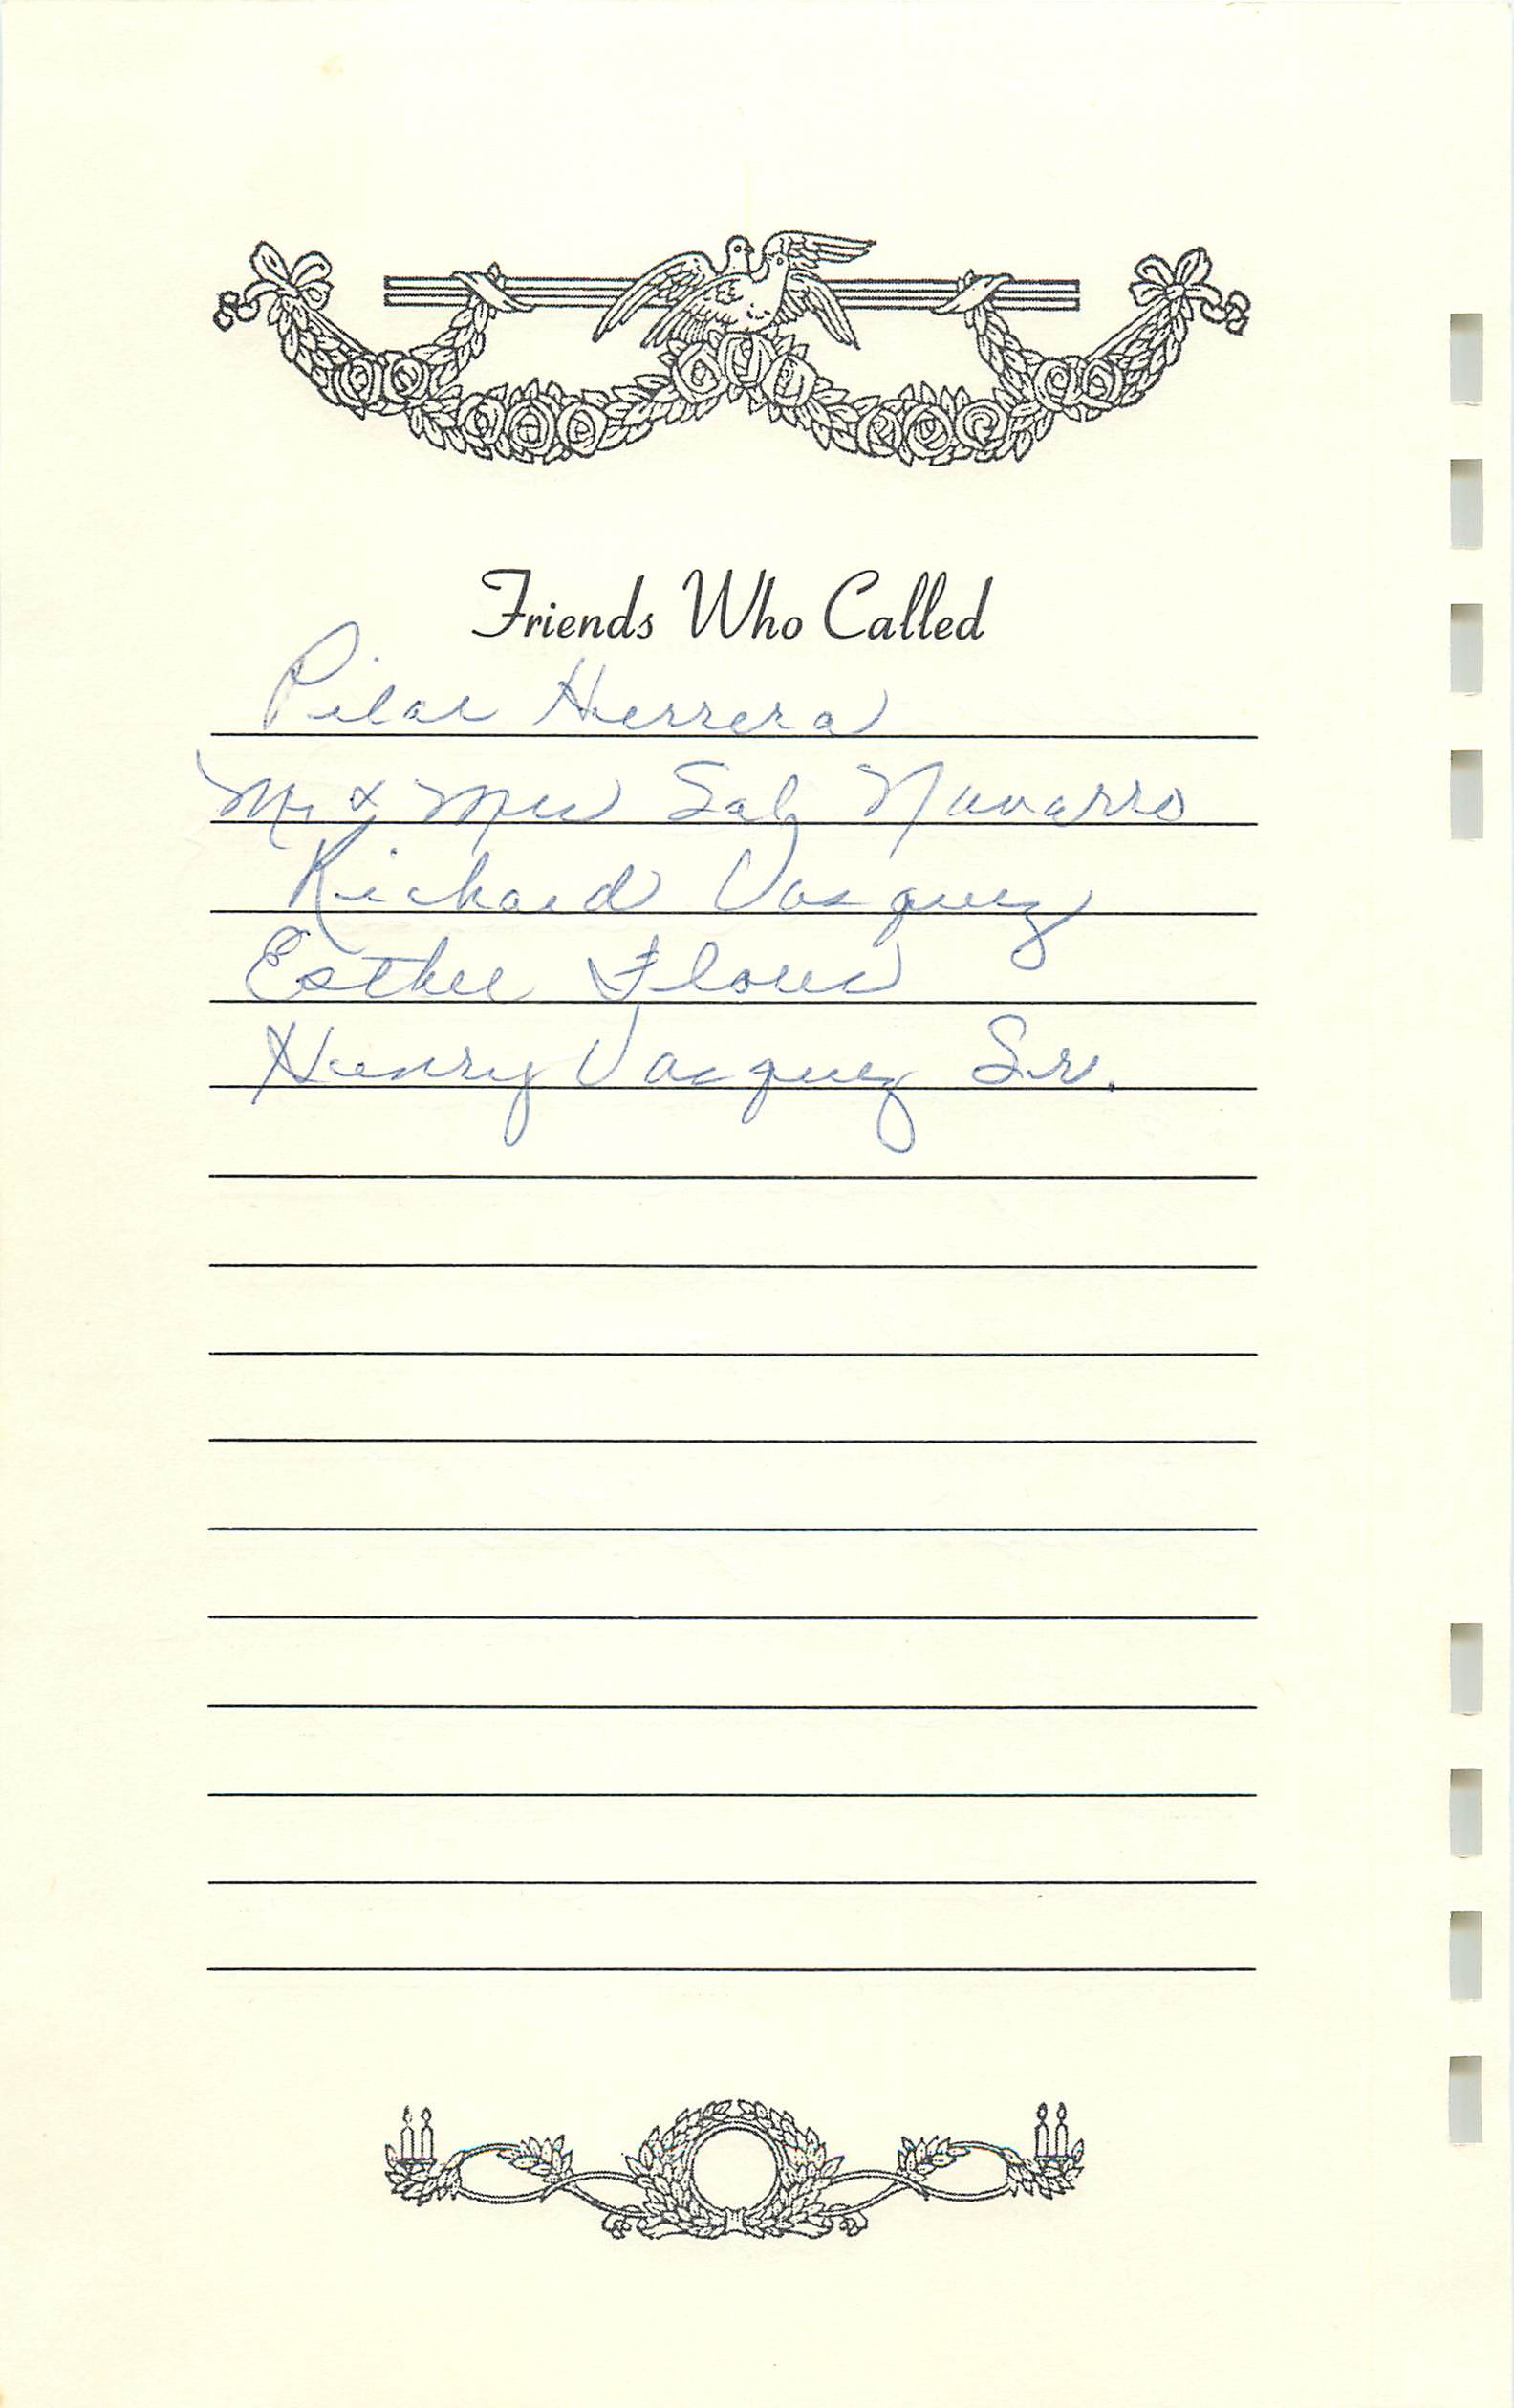 Friends Who Called
Pilar Herrera
Mr & Mrs Sal Navarro
Richard Vasquez
Esther Flores
Henry Vasquez Sr.